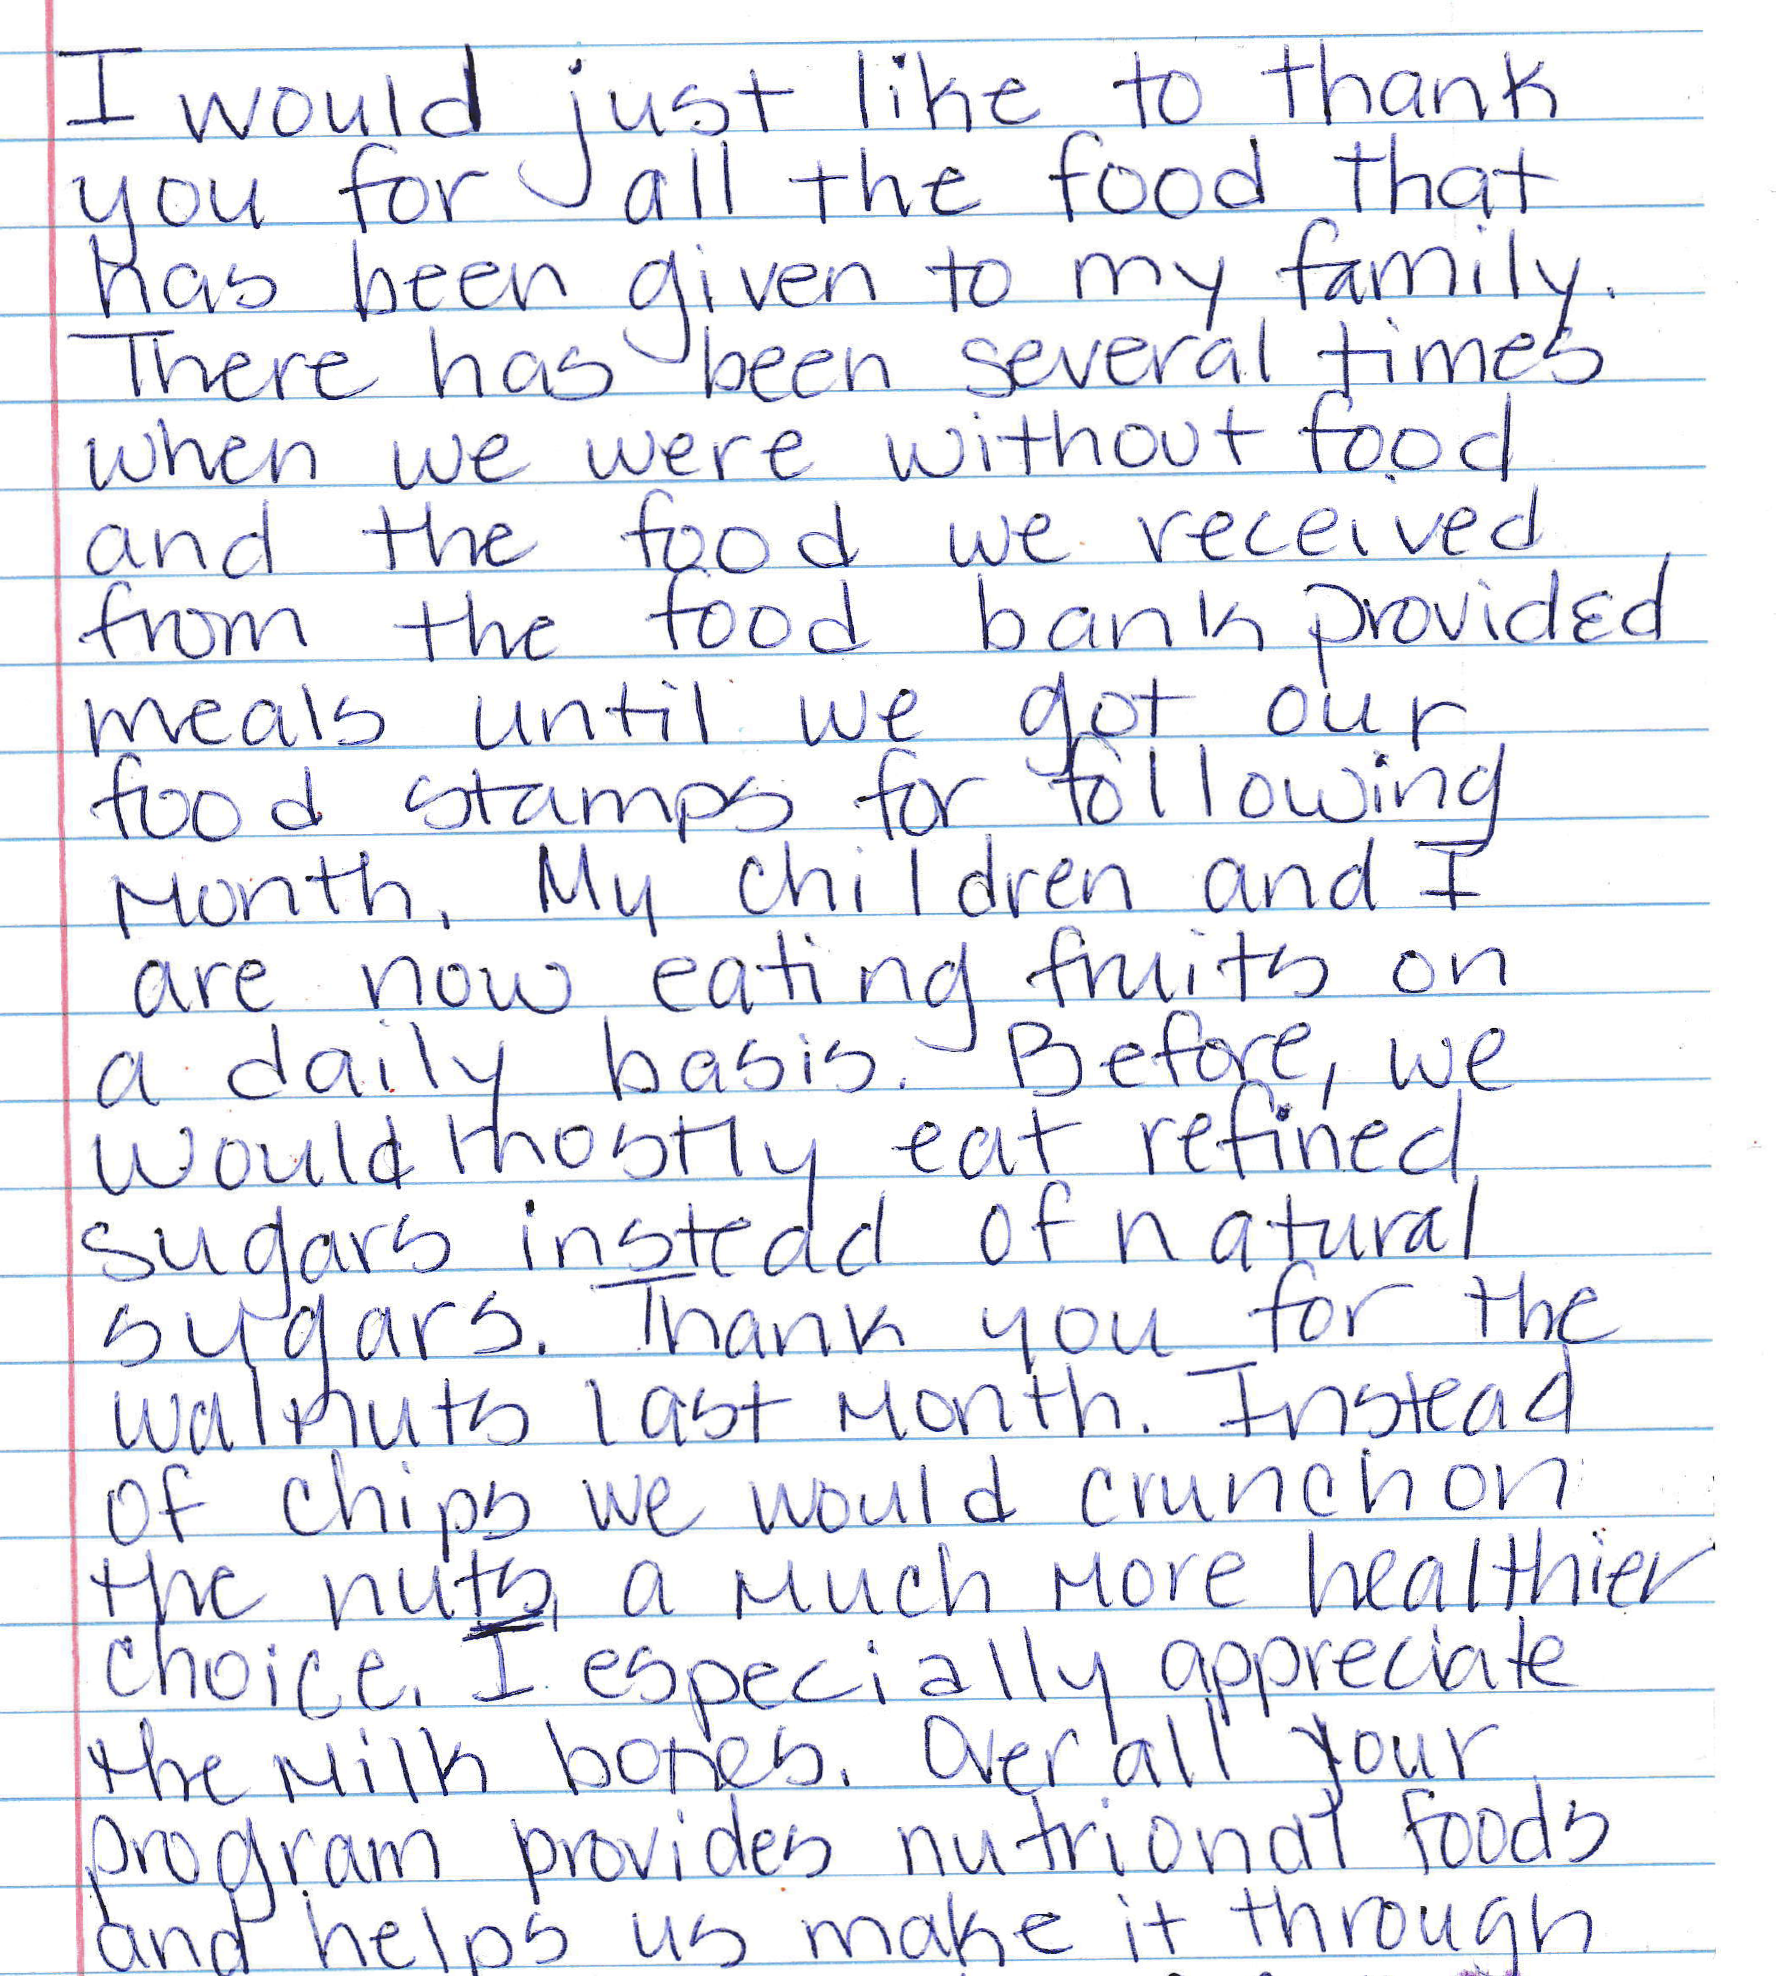 I would just like to thank
you for all the food that
has been given to my family.
There has been several times
when we were without food
and the food we received
from the food bank provided
meals until we got our
food stamps for following
Month. My children and I
are now eating fruits on
a daily basis. Before, we
would mostly eat refined
sugars instead of natural
sugars. Thank you for the
walnuts last Month. Instead
of chips we would crunch on
the nuts, a Much More healthier
choice. I especially appreciate
the Milk bones. Over all your
program provides nutrional foods
and helps us make it through